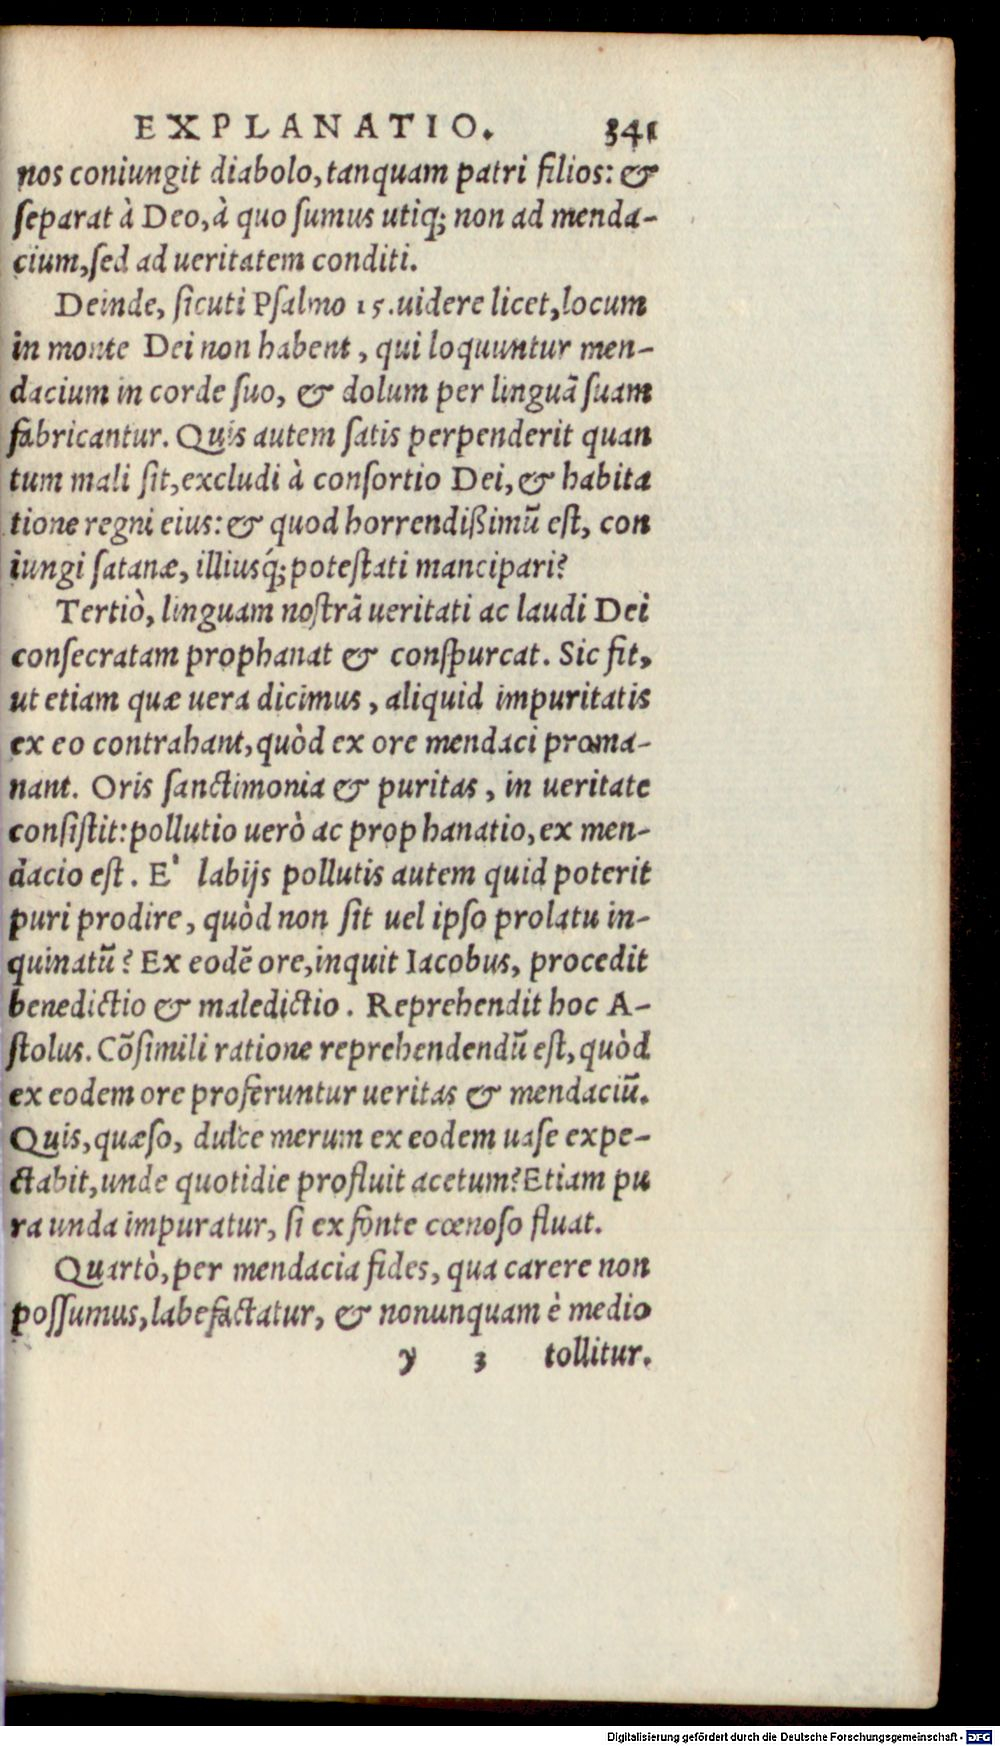 EXPLANATIO. 341
nos coniungit diabolo, tanquam patri filios: &
ſeparat à Deo, à quo ſumus utiq; non ad menda-
cium, ſed ad ueritatem conditi.
Deinde, ſicuti Pſalmo 15. uidere licet, locum
in monte Dei non habent, qui loquuntur men-
dacium in corde ſuo, & dolum per linguã ſuam
fabricantur. Quis autem ſatis perpenderit quan
tum mali ſit, excludi à conſortio Dei, & habita
tione regni eius: & quod horrendißimũ eſt, con
iungi ſatanæ, illiusq́; poteſtati mancipari?
Tertiò, linguam noſtrã ueritati ac laudi Dei
conſecratam prophanat & conſpurcat. Sic fit,
ut etiam quæ uera dicimus, aliquid impuritatis
ex eo contrahant, quòd ex ore mendaci proma-
nant. Oris ſanctimonia & puritas, in ueritate
conſiſtit: pollutio uerò ac prophanatio, ex men-
dacio eſt. E' labijs pollutis autem quid poterit
puri prodire, quòd non ſit uel ipſo prolatu in-
quinatũ? Ex eodẽ ore, inquit Iacobus, procedit
benedictio & maledictio. Reprehendit hoc A-
ſtolus. Cõſimili ratione reprehendendũ eſt, quòd
ex eodem ore proferuntur ueritas & mendaciũ.
Quis, quæſo, dulce merum ex eodem uaſe expe-
ctabit, unde quotidie profluit acetum? Etiam pu
ra unda impuratur, ſi ex fonte cœnoſo fluat.
Quartò, per mendacia fides, qua carere non
poſſumus, labefactatur, & nonunquam è medio
y 3 tollitur.
Digitalisierung gefördert durch die Deutsche Forschungsgemeinschaft - DFG